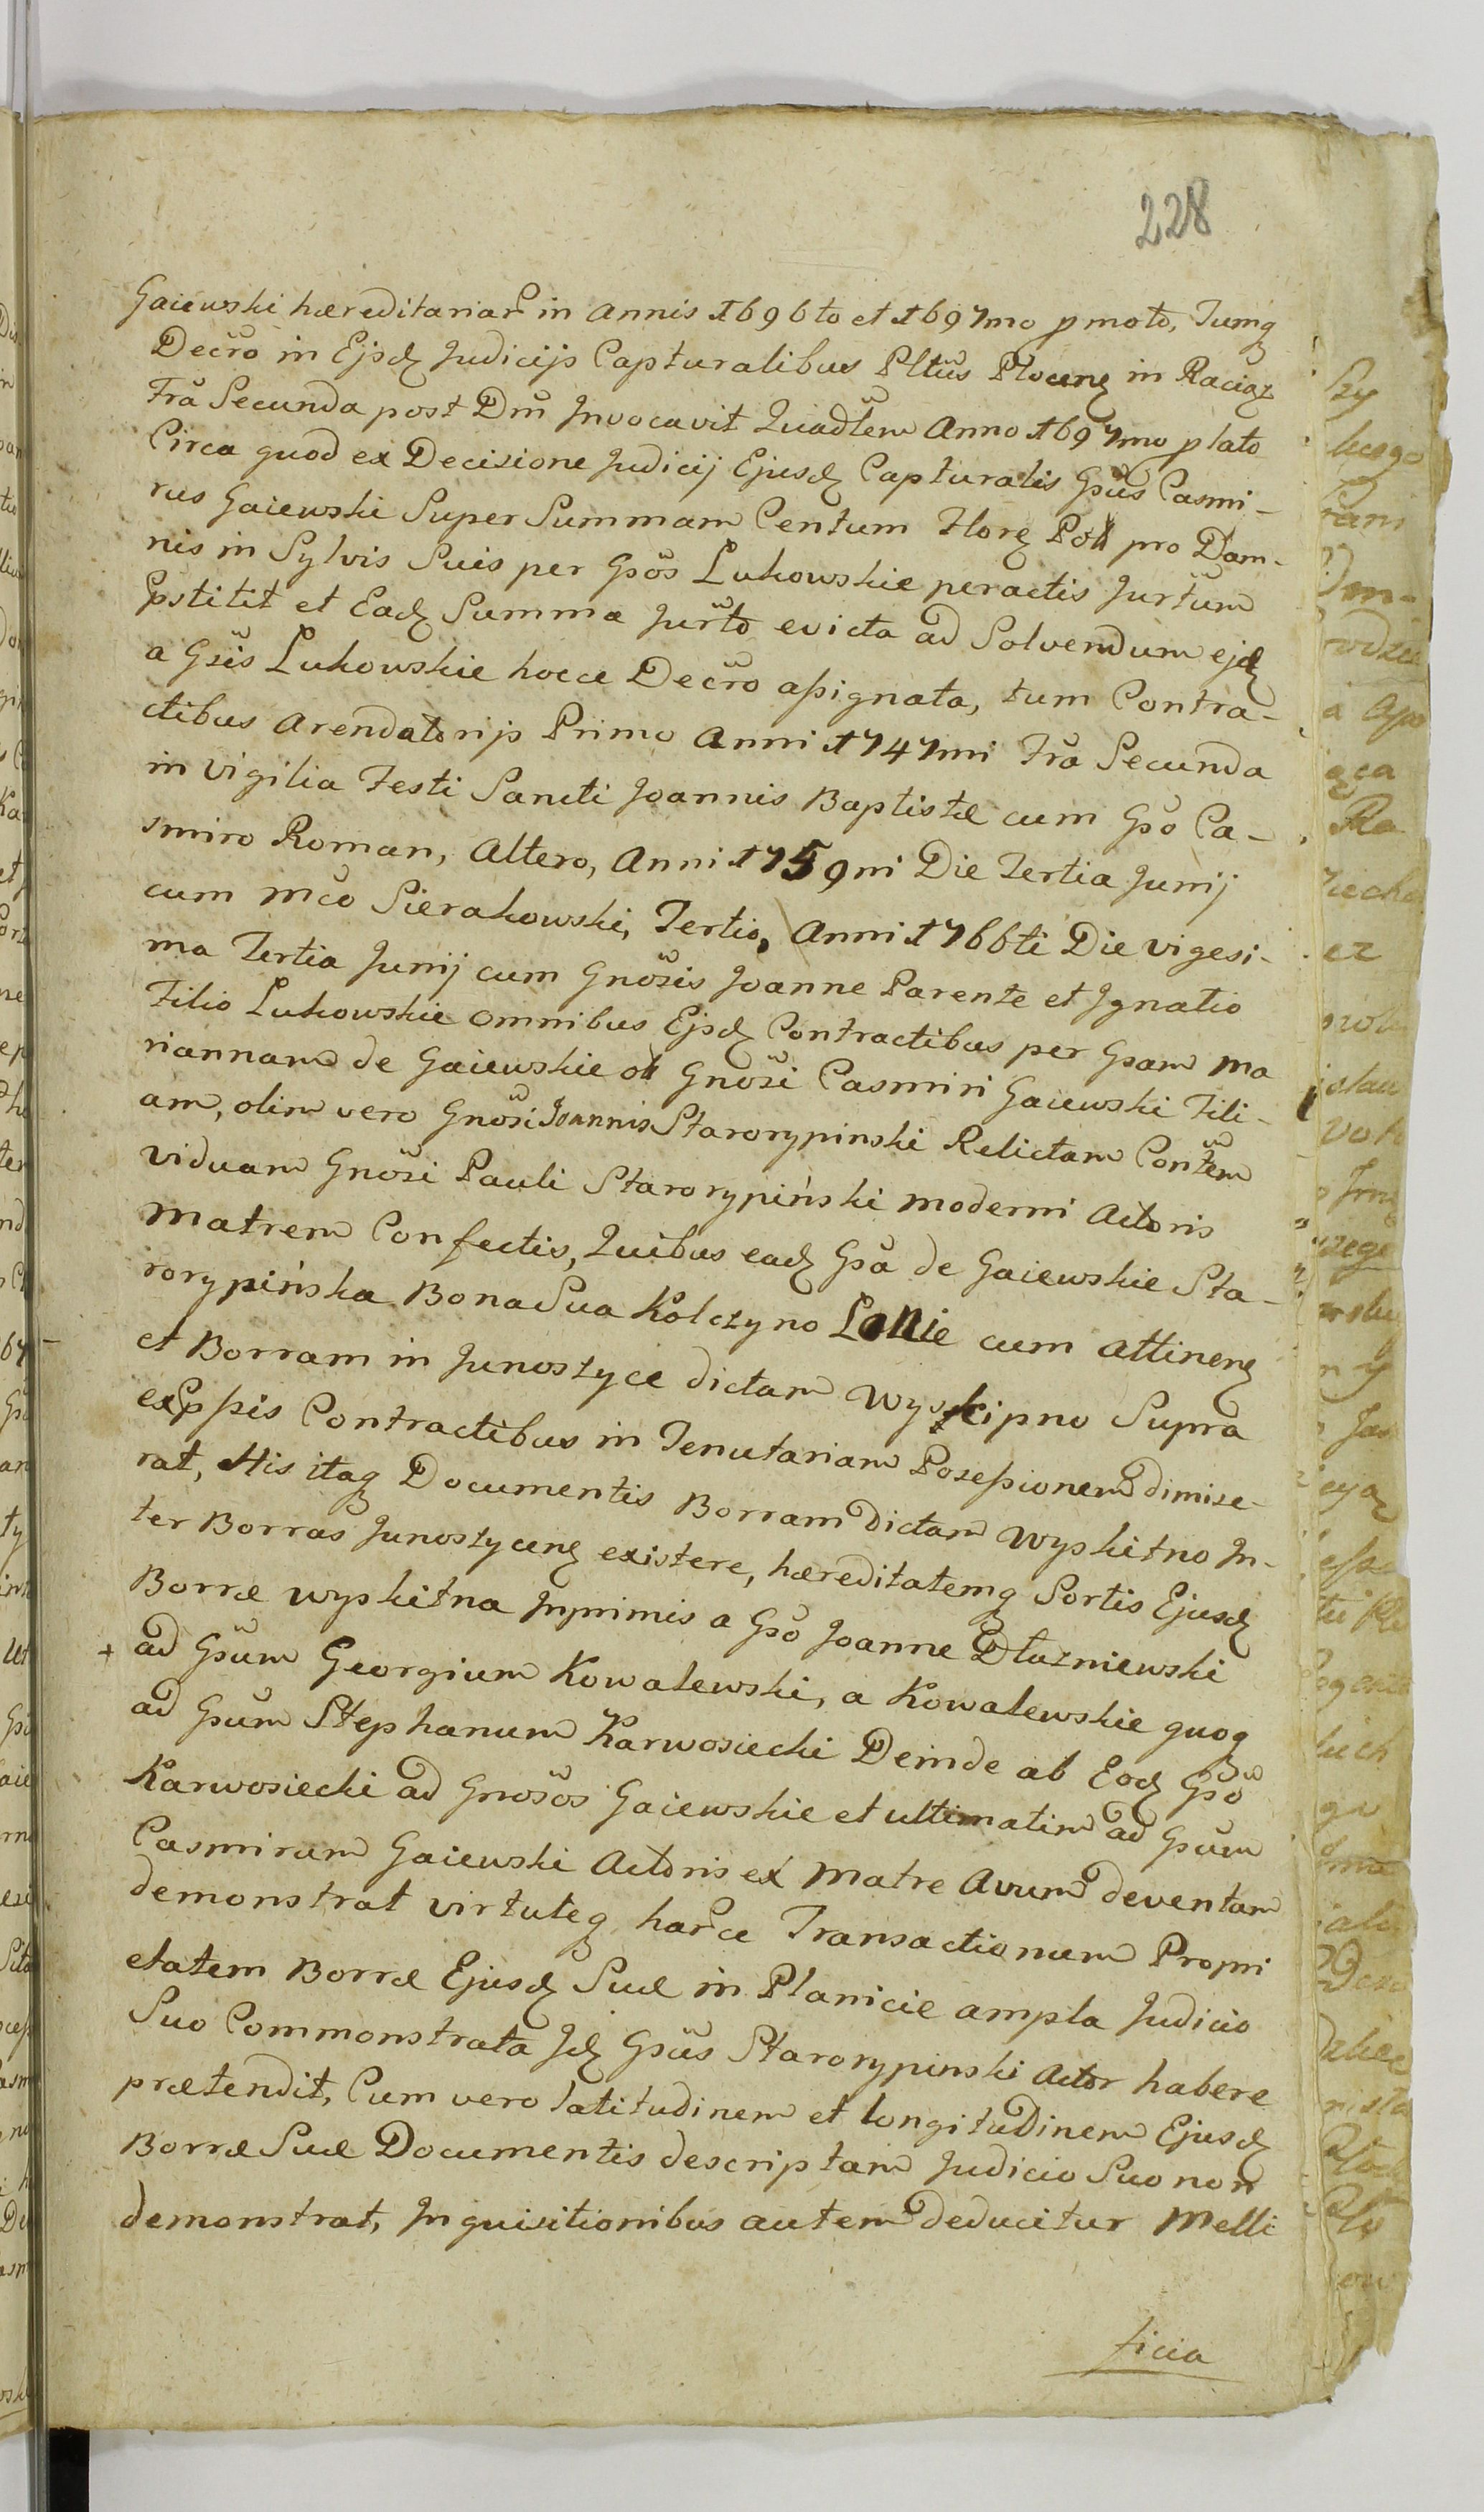 228
Gaiewski hæreditariar in Annis 1696to et 1697mo pmoto, Tumq
Decro in Ejsd Judicijs Capturalibus Pltus Plocen in Raciąz
Fra Secunda post Dm Invocavit Quadlem Anno 1697mo plato
Circa quod ex Decisione Judicij Ejusd Capturalis Gsus Casmi-
rus Gaiewski Super Summam Centum Flore Poll pro Dam-
nis in Sylvis Suis per Gsos Lukowskie peractis Jurtum
Pstitit et Ead Summa Jurto evicta ad Solvendum ejd
a Gsis Lukowskie hocce Decro assignata, tum Contra-
ctibus Arendatorijs Primo Anni 1747mi Fra Secunda
in Vigilia Festi Sancti Joannis Baptistæ cum Gso Ca-
smiro Roman, Altero, Anni 1759ni Die Tertia Junij
cum Mco Sierakowski, Tertio, Anni 1766ti Die vigesi-
ma Tertia Junij cum Gnosis Joanne Parente et Ignatio
Filio Lukowskie omnibus Ejsd Contractibus per Gsam Ma
riannam de Gaiewskie oll Gnosi Casmiri Gaiewski Fili-
am, olim vero Gnosi Joannis Starorypinski Relictam Contem
Viduam Gnosi Pauli Starorypiński moderni Actoris
Matrem Confectis, Quibus ead Gsa de Gaiewskie Sta-
rorypińska Bona Sua Kolczyno Lonie cum attinen
et Borram in Junoszyce dictam Wyskipno Supra
exPpsis Contractibus in Tenutariam Possessionem dimise-
rat, His itaq Documentis Borram dictam Wyskitno In-
ter Borras Junoszycen existere, hæreditatemq Sortis Ejusd
Borræ Wyskitna Inprimis a Gso Joanne Dłużniewski
+ ad Gsum Georgium Kowalewski, a Kowalewskie quoq
ad Gsum Stephanum Karwosiecki Deinde ab Eod Gso
Karwosiecki ad Gnosos Gaiewskie et ultimatim ad Gsum
Casmirum Gaiewski Actoris ex Matre Avum deventam
demonstrat virtuteq harce Transactionum Propri
etatem Borræ Ejusd Suæ in Planicie ampla Judicio
Suo Commonstrata Jd Gsus Starorypinski Actor habere
prætendit, Cum vero latitudinem et longitudinem Ejusd
Borræ Suæ Documentis descriptam Judicio Suo non
demonstrat, Inquisitionibus autem deducitur Melli
ficia